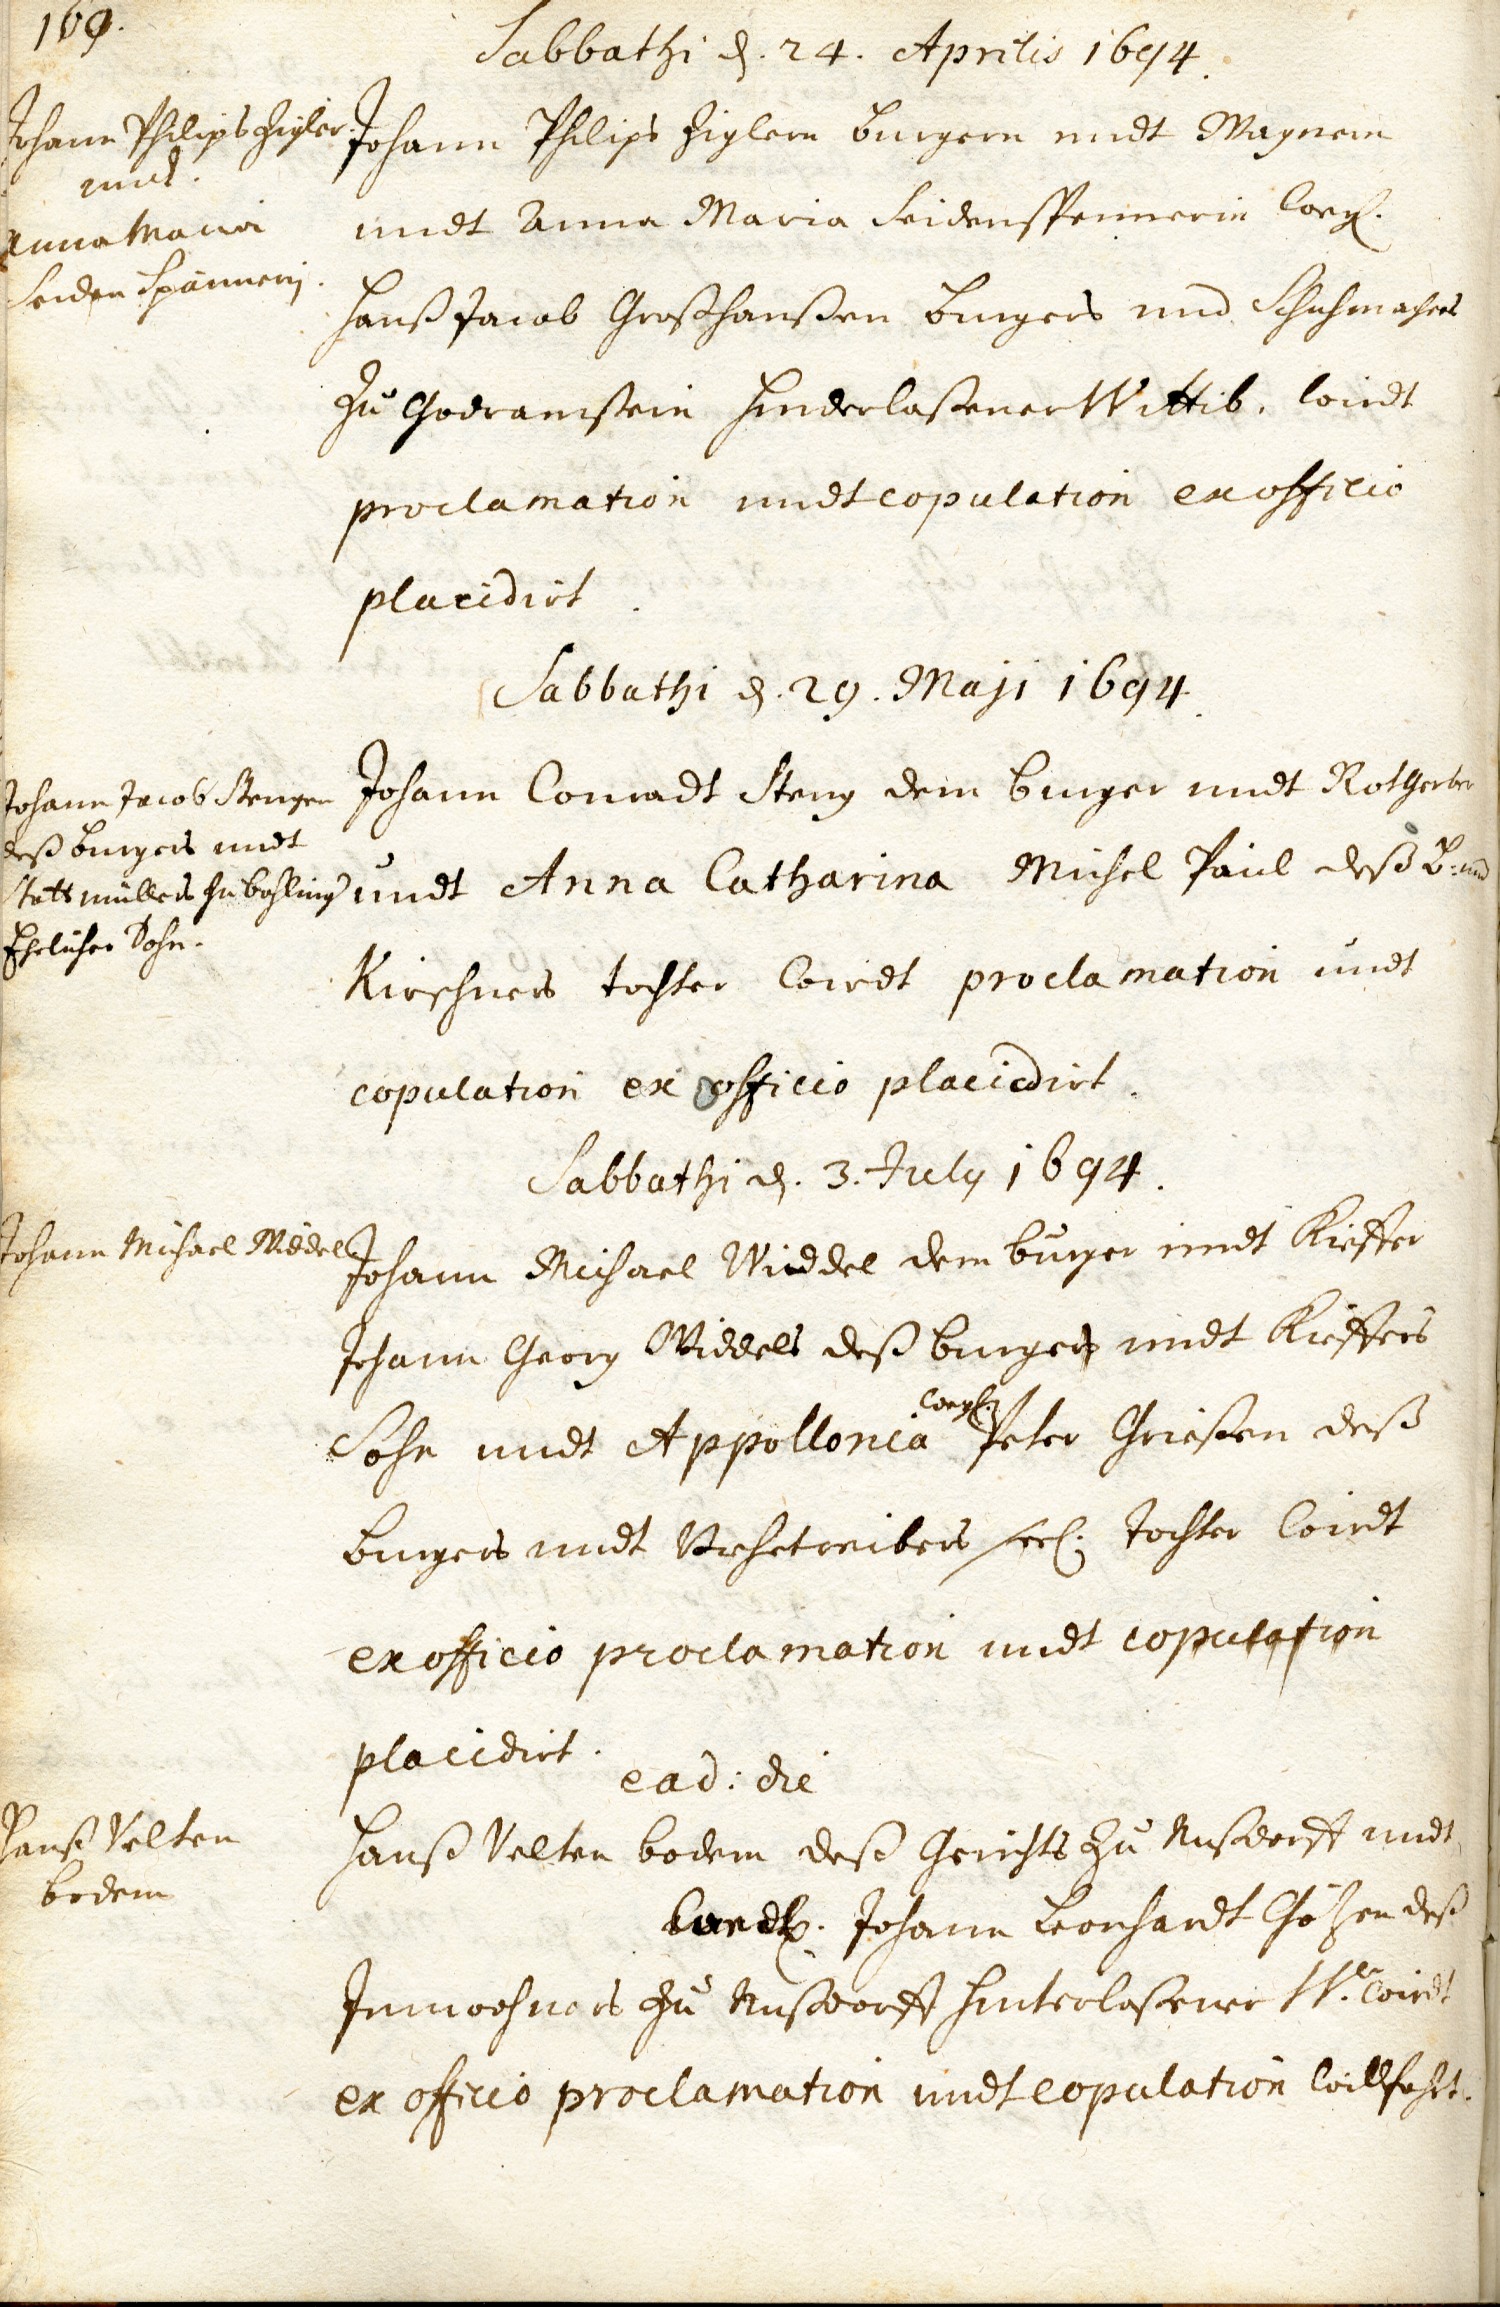 169.
Sabbathi d. 24. Aprilis 1694.
Johann Philips Zigler.
undt.
Anna Maria
Seiden Spännerin.
Johann Philips Ziglern burgern undt Wagnern
undt Anna Maria Seidenspennerin weyl.
Hanß Jacob Großhanßen burgers und Schuhmachers
Zu Godramstein hinderlaßener Wittib. wirdt
proclamation undt copulation ex officio
placidirt.
Sabbathi d. 29. Maji 1694.
Johann Jacob Stengen
deß burgers undt
Stattmüllers zu
Ehelicher Sohn.
Johann Conradt Steng dem burger undt Rothgerber
undt Anna Catharina Michel Paul deß B. und
Kirschners tochter wirdt proclamation undt
copulation ex officio placidirt.
Sabbathi d. 3. July 1694.
Johann Michael Widdel
Johann Michael Widdel dem burger undt Kieffer
Johann Georg Widdels deß burgers undt Kieffers
Sohn undt Appollonia weyl. Peter Grießen deß
burgers undt seel. Tochter wirdt
ex officio proclamation undt copulation
placidirt.
ead: die
Hanß Velten
bodem
Hanß Velten bodem deß Gerichts Zu Nußdorff undt
Johann Leonhardt Götzen deß
Innwohners Zu Nußdorff hinterlaßener W. wirdt
ex officio proclamation undt copulation willfahrt.